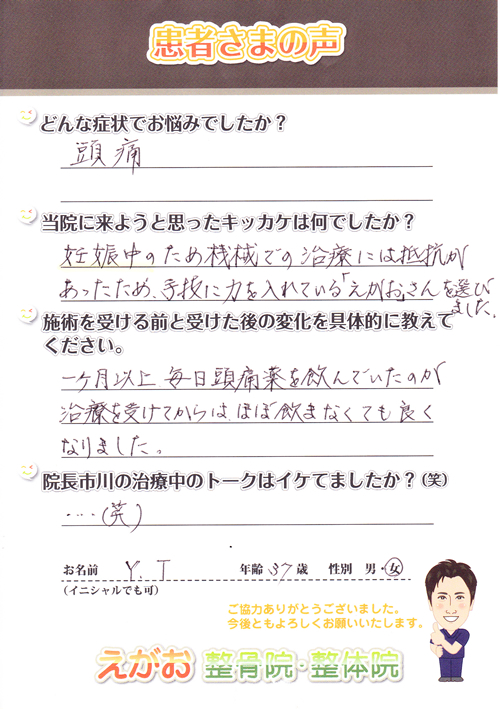 患者さまの声
どんな症状でお悩みでしたか？
頭痛
当院に来ようと思ったキッカケは何でしたか？
妊娠中のため機械での治療には抵抗が
あったため、手技に力を入れている「えがお」さんを選び
ました。
施術を受ける前と受けた後の変化を具体的に教えて
ください。
一ヶ月以上 毎日頭痛薬を飲んでいたのが
治療を受けてからは、ほぼ飲まなくても良く
なりました。
院長市川の治療中のトークはイケてましたか？（笑）
・・・・(笑)
お名前 Y. T 年齢・37歳 性別 男・女
(イニシャルでも可)
ご協力ありがとうございました。
今後ともよろしくお願いいたします。
えがお 整骨院・整体院